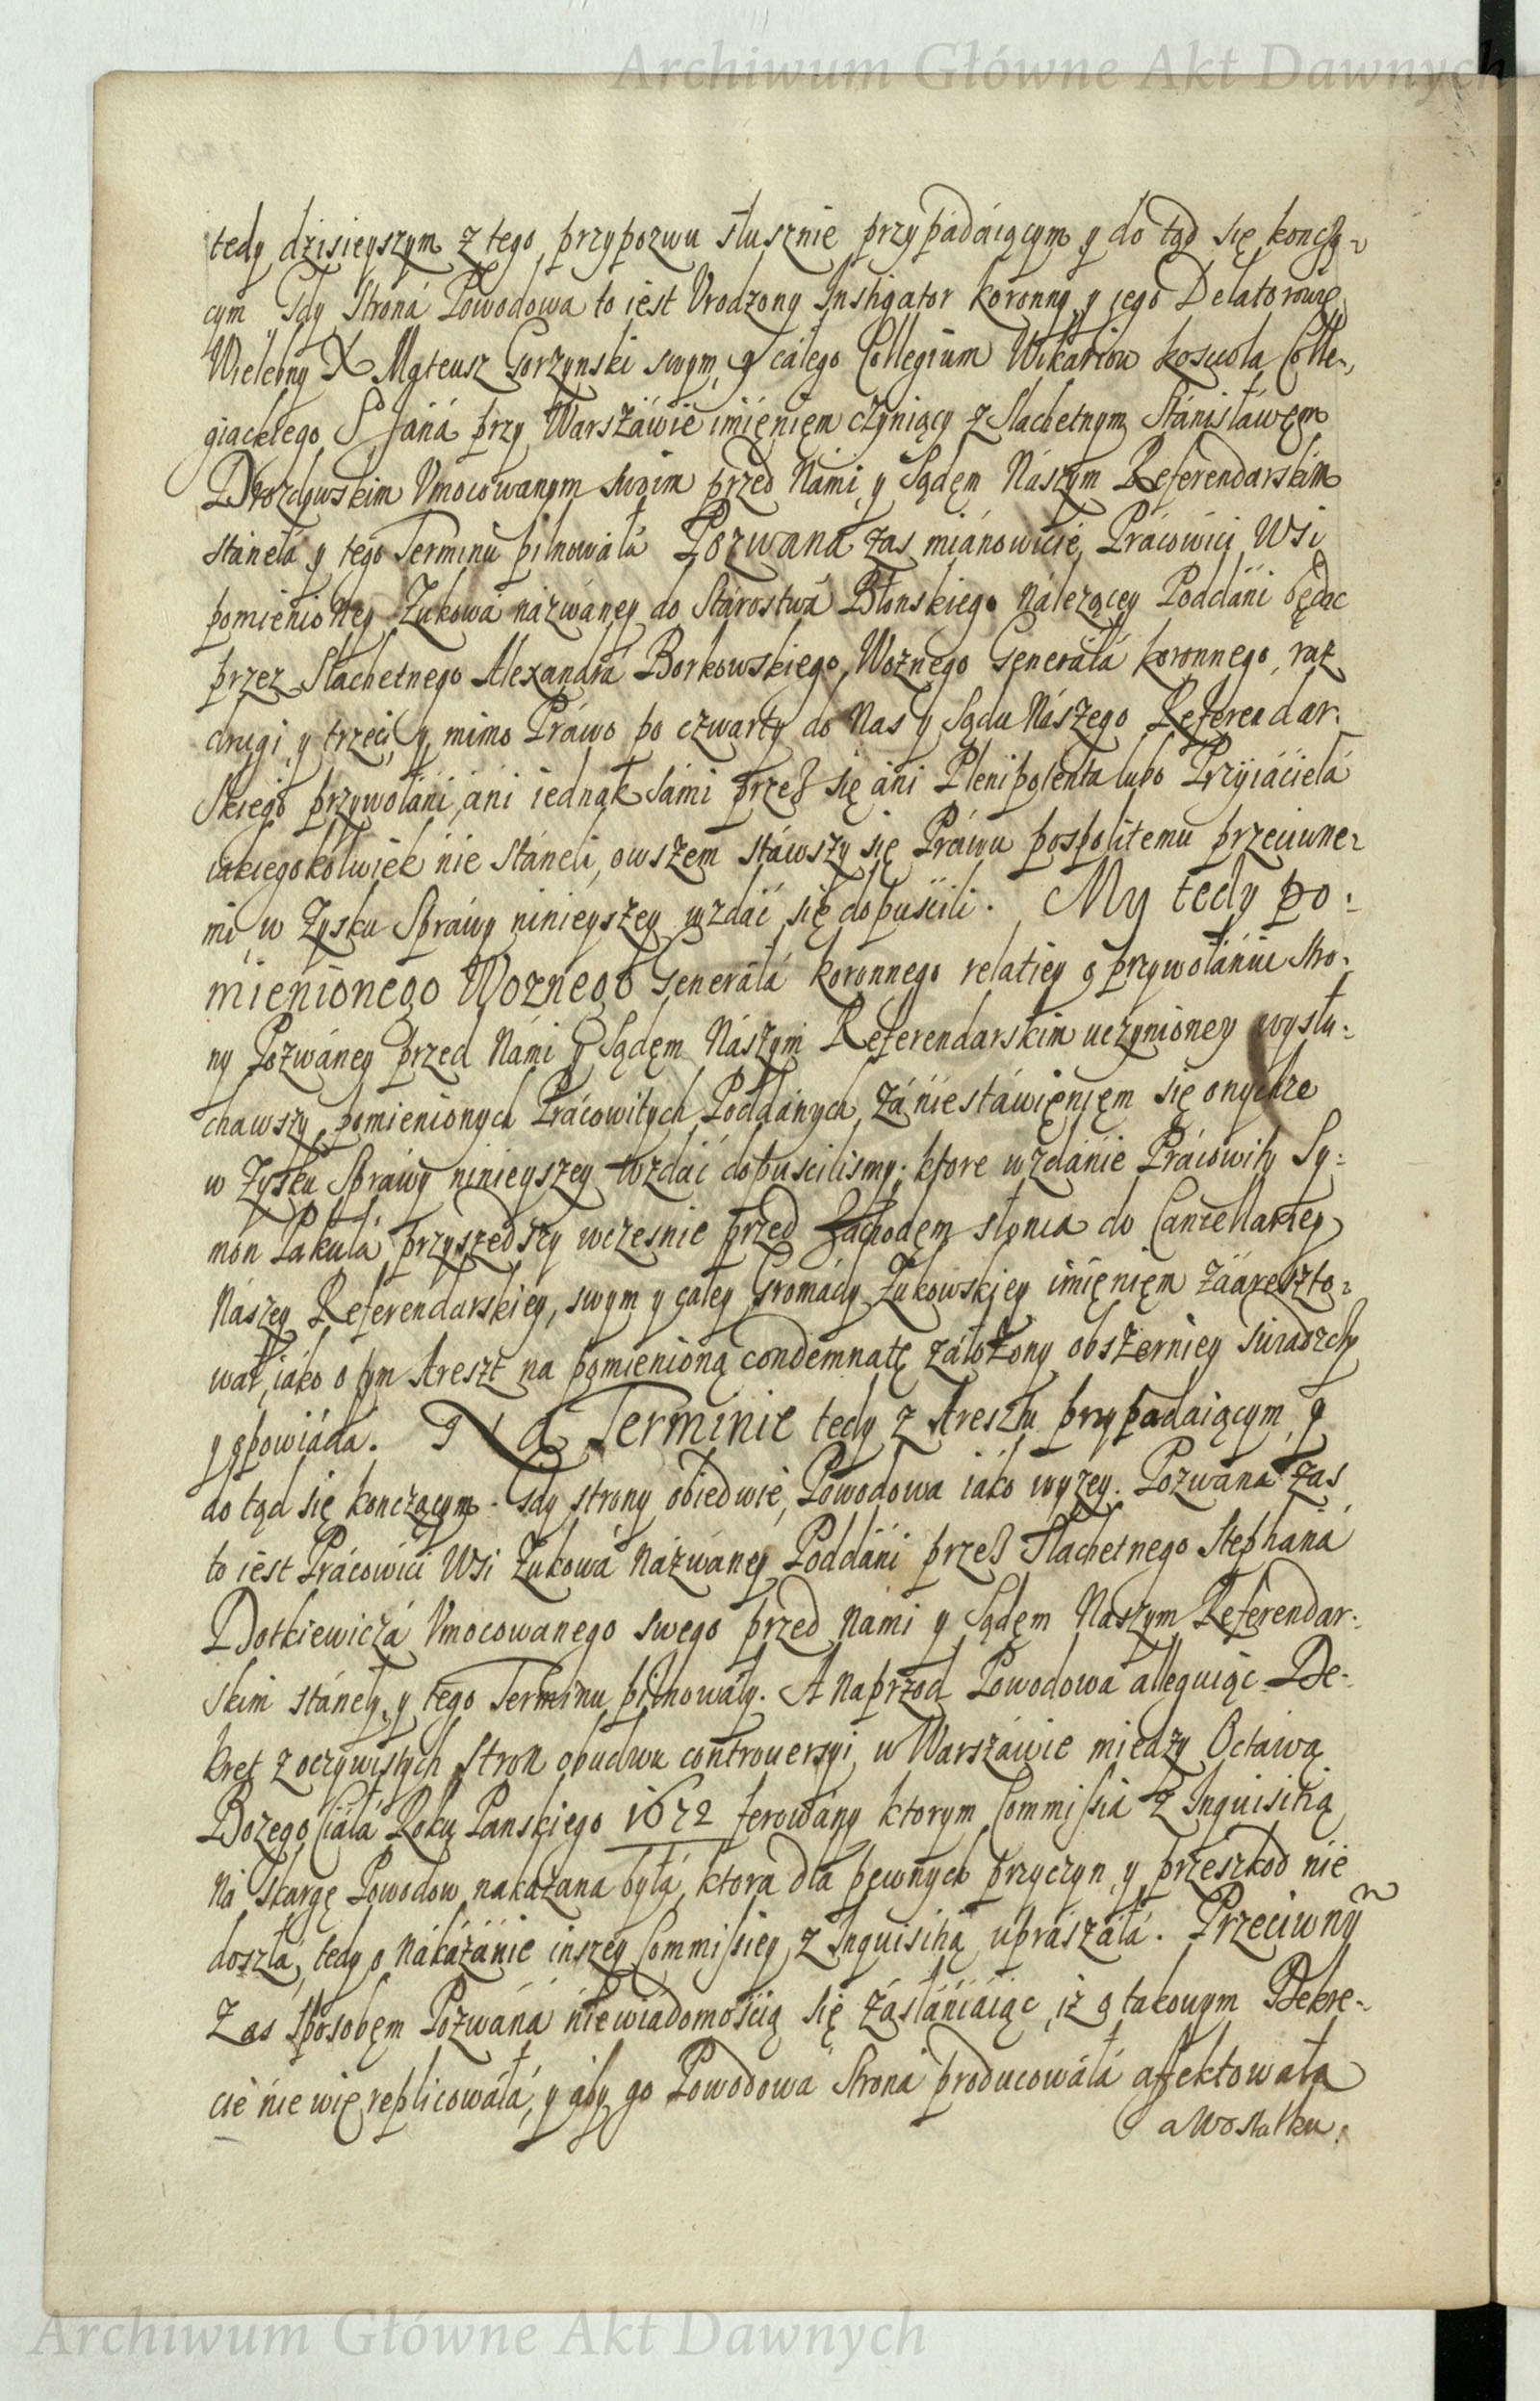 Archiwum Główne Akt Dawnych
tedy dzisieyszym z tego przypozwu słusznie przypádáiącym y do tąd się konczą-
cym Gdy Stroná Powodowa to iest Vrodzony Instigator koronny y iego Delatorowie
Wielebny X Mateusz Gorzynski swym, y cáłego Collegium Wikariow koscioła Colle-
giackiego S Jáná przy Warszáwie imięnięm czyniący z Slachetnym Stánisławęm
Drozdowskim Vmocowanym swoim przed Námi y Sądęm Nászym Referendarskim
stáneła y tego Terminu pilnowáłá Pozwana zas mianowicie Prácowici Wsi
pomienioney Zukowá názwáney do Stárostwá Błonskiego należącey Poddáni będąc
przez Slachetnego Alexandrá Borkowskiego Woznego Generálá koronnego, raz
drugi, y trzeci, y mimo Práwo po czwarty do Nas y Sądu Nászego Referendar-
skiego przywołáni, áni iednák sámi przes się áni Plenipotenta lubo Przyiácielá
iákiegokolwiek nie stáneli, owszem stáwszy się Práwu pospolitemu przeciwne-
mi, w Zysku Spráwy ninieyszey wzdáć się dopuścili. My tedy po-
mienionego Woznego Generálá koronnego relatiey o przywołániu stro-
ny Pozwáney przed Námi y Sądęm Nászym Referendarskim uczynioney wysłu-
chawszy pomienionych Prácowitych Poddánych, zá niestáwięnięm się onychze
w Zysku Spráwy ninieyszey wzdáć dopuscilismy. ktore wzdánie Prácowity Sy-
mon Pakuła przyszedszy wczesnie przed Záchodęm słonca do Cancellariey
Nászey Referendarskiey, swym y cáłey Gromády Zukowskiey imięnięm zááreszto-
wał, iáko o tym Areszt na pomienioną condemnatę założony obszerniey swiadczy
y opowiáda. Na Terminie tedy z Aresztu przypadaiącym, y
do tąd się konczącym. Gdy strony obiedwie, Powodowa iáko wyzey. Pozwana zas
to iest Prácowici Wsi Zukowá Názwáney Poddáni przes Slachetnego Stephaná
Dotkiewiczá Vmocowanego swego przed Námi y Sądęm Naszym Referendar-
skim stáneły, y tego Terminu pilnowáły. A naprzod Powodowa alleguiąc De-
kret z oczywistych Stron obudwu controuersyi w Warszáwie miedzy Octawą
Bozego Ciáłá Roku Panskiego 1672 ferowány ktorym Commissia z Inquisitią
ná skargę Powodow nakazana byłá, ktora dla pęwnych przyczyn, y przeszkod nie
doszła, tedy o nákazánie inszey Commissiey z Inquisitią upraszáłá. Przeciwnÿ
Zas sposobęm Pozwáná niewiádomoscią się zásłániáiąc, iz o takowym Dekre-
cie nie wie replicowáłá, y aby go Powodowa Strona producowáłá affektowałá
a wostatku.
Archiwum Główne Akt Dawnych